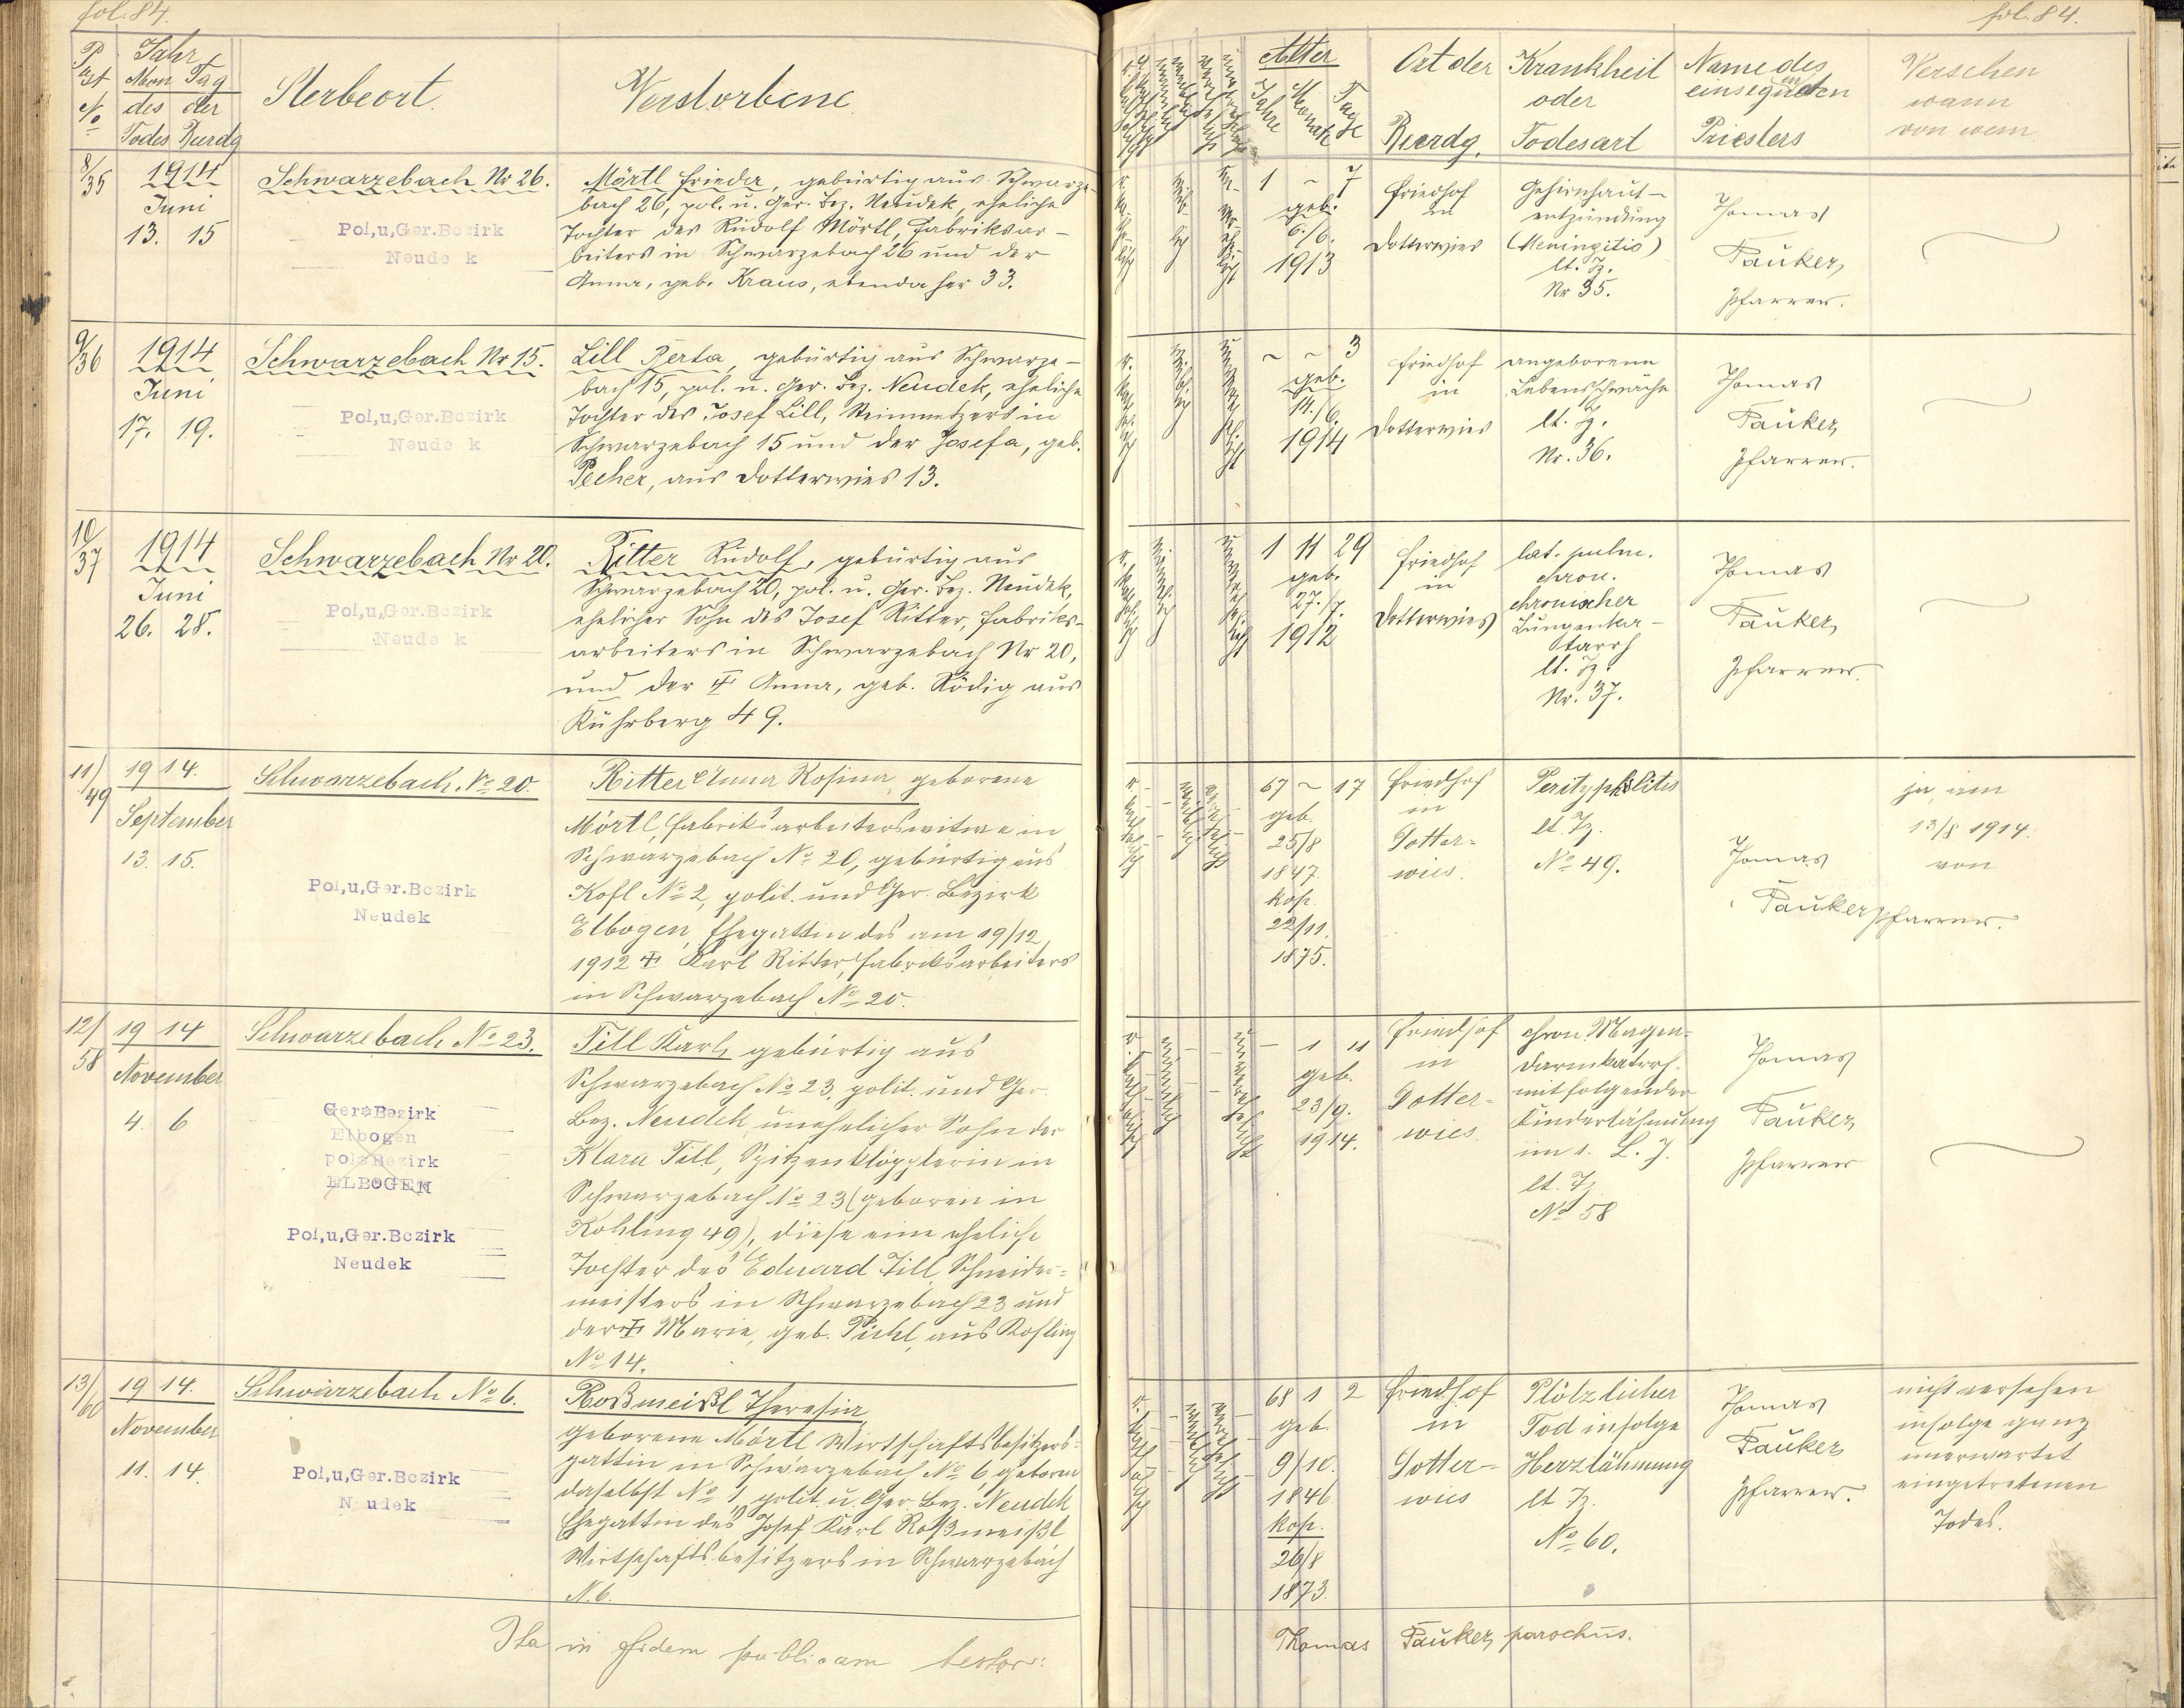 fol. 84.
P
rst
No
Jahr
Mon Tag
des der
Todes Beerdg
Sterbeort.
Verstorbene
8/35
1914
Juni
13. 15
Schwarzebach Nr 26.
Pol,u,Ger.Bezirk
Neudek
Mörtl Frieda, gebürtig aus Schwarze-
bach 26, pol. u. Ger. Bez. Neudek, eheliche
Tochter des Rudolf Mörtl, Fabriksar-
beiters in Schwarzebach 26 und der
Anna, geb. Kraus, ebendaher 33.
9/36
1914
Juni
17. 19.
Schwarzebach Nr 15.
Pol,u,Ger.Bezirk
Neudek
Lill Berta, gebürtig aus Schwarze-
bach 15, pol. u. Ger. Bez. Neudek, eheliche
Tochter des Josef Lill, Steinmetzers in
Schwarzebach 15 und der Josefa, geb.
Pecher, aus Dotterwies 13.
10/37
1914
Juni
26. 28.
Schwarzebach Nr 20.
Pol,u,Ger.Bezirk
Neudek
Ritter Rudolf, gebürtig aus
Schwarzebach 20, pol. u. Ger. Bez. Neudek,
ehelicher Sohn des Josef Ritter, Fabriks-
arbeiters in Schwarzebach Nr 20,
und der ‡ Anna, geb. Rödig aus
Kührberg 49.
11/49
1914.
September
13. 15.
Schwarzebach No 20.
Pol,u,Ger.Bezirk
Neudek
Ritter Anna Rosina, geborene
Mörtl, Fabriksarbeiterswitwe in
Schwarzebach No 20, gebürtig aus
Kofl No 2, polit. und Ger. Bezirk
Elbogen, Ehegattin des am 19/12
1912 ‡ Karl Ritter, Fabriksarbeiters
in Schwarzebach No 20.
12/58
1914
November
4. 6
Schwarzebach No 23.
Ger.Bezirk
Elbogen
pol.Bezirk
ELBOGEN
Pol,u,Ger.Bezirk
Neudek
Till Karl, gebürtig aus
Schwarzebach No 23, polit. und Ger.
Bez. Neudek, unehelicher Sohn der
Klara Till, Spitzenklöpplerin in
Schwarzebach No 23 (geboren in
Kohling 49), diese eine eheliche
Tochter des Eduard Till, Schneider=
meisters in Schwarzebach 23 und
der ‡ Marie, geb. Pichl, aus Kohling
No 14.
13/60
1914.
November
11. 14.
Schwarzebach No 6.
Pol,u,Ger.Bezirk
Neudek
Roßmeißl Theresia,
geborene Mörtl Wirtschaftsbesitzers=
gattin in Schwarzebach No 6, geboren
daselbst No 1, polit. u. Ger. Bez. Neudek
Ehegattin des Josef Karl Roßmeißl
Wirtschaftsbesitzers in Schwarzebach
N. 6.
Ita in fidem publicam testor:
fol. 84.
Alter
Jahre Monate Tage
Ort der
Beerdg.
Krankheit
oder
Todesart
Name des
einsegnenden
Priesters
Versehen
wann
von wem
1 ~ 7
geb.
6./6.
1913
Friedhof
in
Dotterwies
Gehirnhaut-
entzündung
(Meningitis)
lt. Z.
Nr 35.
Thomas
Pauker,
Pfarrer.
~ ~ 3
geb.
14./6.
1914
Friedhof
in
Dotterwies
angeborene
Lebensschwäche
lt. Z.
Nr. 36.
Thomas
Pauker,
Pfarrer.
1 11 29
geb.
27./7.
1912
Friedhof
in
Dotterwies
cat. pulm.
chron.
chronischer
Lungenka-
tarrh
lt. Z.
Nr. 37.
Thomas
Pauker,
Pfarrer.
67 ~ 17
geb.
25/8
1847.
kop.
22/11.
1875.
Friedhof
in
Dotter=
wies.
Perityphlitis
lt. Z.
No 49.
Thomas
Pauker Pfarrer.
ja, am
13/8 1914.
von
– 1 11
geb.
23/9.
1914.
Friedhof
in
Dotter=
wies.
chron. Magen-
darmkatarrh
mit folgender
Kinderlähmung
im 1. L. J.
lt. Z.
No 58
Thomas
Pauker,
Pfarrer
68 1 2
geb.
9/10.
1846
kop.
26/8
1873.
Friedhof
in
Dotter-
wies
Plötzlicher
Tod infolge
Herzlähmung
lt Z.
No 60.
Thomas
Pauker
Pfarrer.
nicht versehen
infolge ganz
unerwartet
eingetretenen
Todes.
Thomas Pauker, parochus.